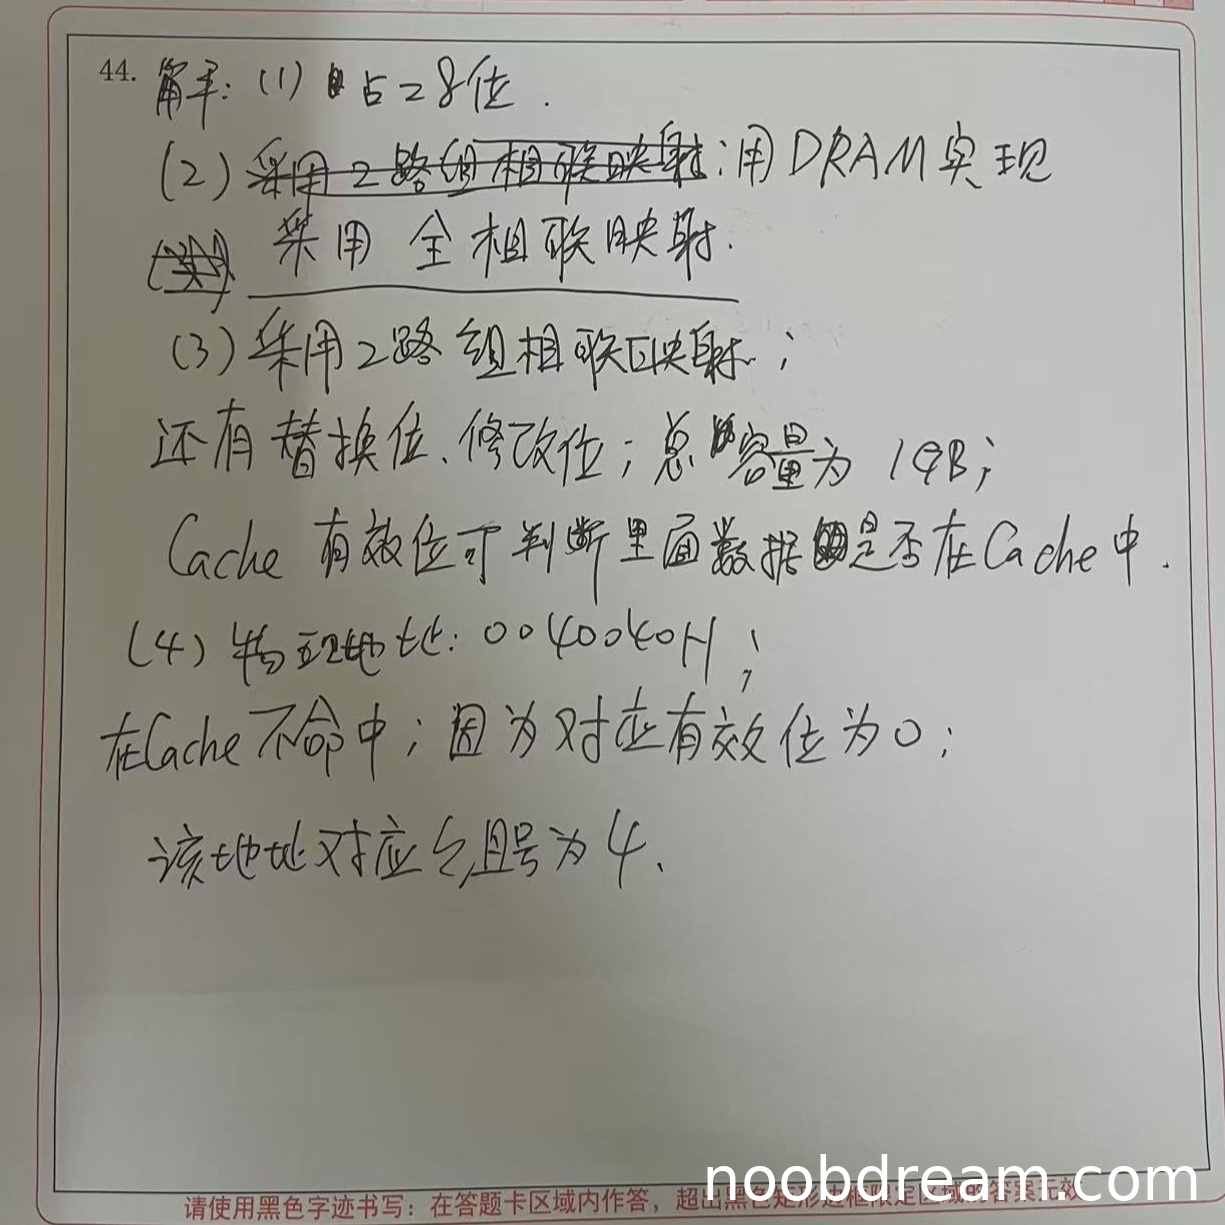 44. 解：(1) 占28位.
(2) 采用2路组相联映射；用DRAM实现
采用 全相联映射.
(3) 采用2路组相联映射；
还有替换位、修改位；总容量为 19B；
Cache 有效位可判断里面数据是否在Cache中.
(4) 物理地址：0040040H；
在Cache不命中；因为对应有效位为0；
该地址对应组号为4.
noobdream.com
请使用黑色字迹书写：在答题卡区域内作答，超出黑色矩形边框限定区域的答案无效